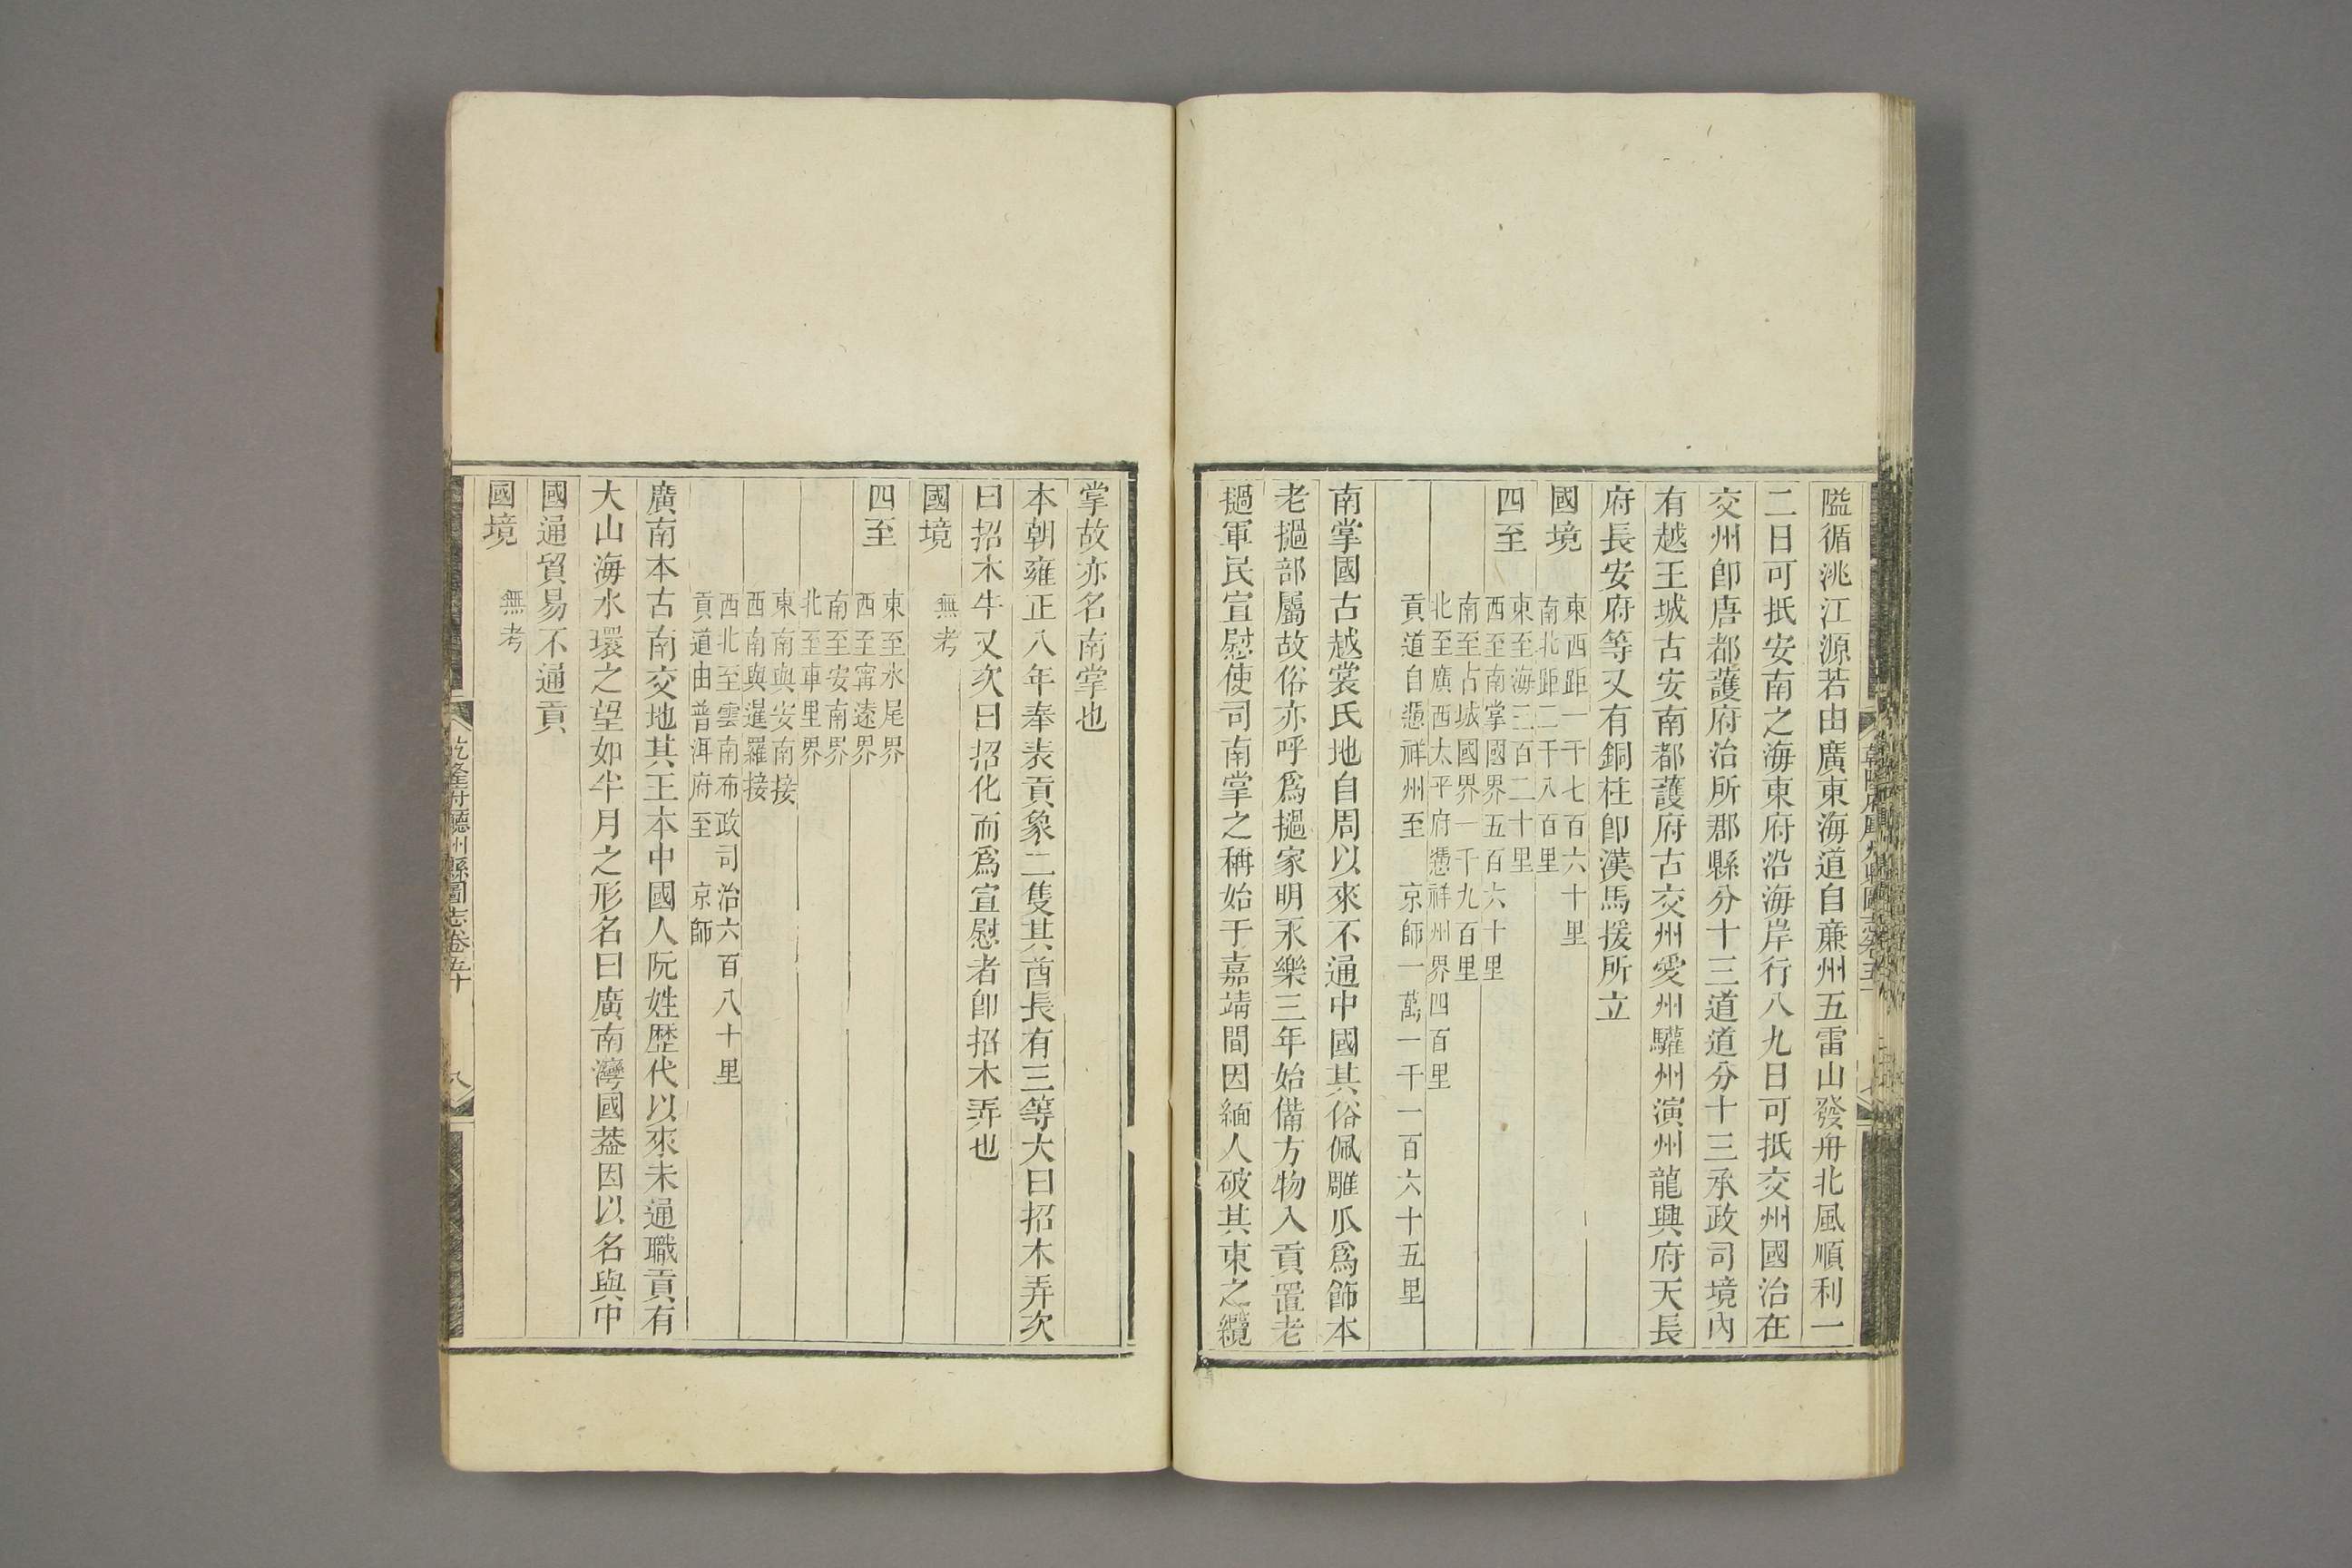 隘循洮江源若由廣東海道自㢘州五雷山發舟北風順利一
二日可抵安南之海東府沿海岸行八九日可抵交州國治在
交州卽唐都護府治所郡縣分十三道道分十三承政司境內
有越王城古安南都護府古交州愛州驩州演州龍興府天長
府長安府等又有銅柱卽漢馬援所立
國境
東西距一千七百六十里
南北距二千八百里
四至
東至海三百二十里
西至南掌國界五百六十里
南至占城國界一千九百里
北至廣西太平府憑祥州界四百里
貢道自憑祥州至 京師一萬一千一百六十五里
南掌國古越裳氏地自周以來不通中國其俗佩雕爪爲飾本
老撾部屬故俗亦呼爲撾家明永樂三年始備方物入貢置老
撾軍民宣慰使司南掌之稱始于嘉靖間因緬人破其東之纜
掌故亦名南掌也
本朝雍正八年奉表貢象二隻其酋長有三等大曰招木弄次
曰招木牛又次曰招化而爲宣慰者卽招木弄也
國境
無考
四至
東至水尾界
西至甯遠界
南至安南界
北至車里界
東南與安南接
西南與暹羅接
西北至雲南布政司治六百八十里
貢道由普洱府至 京師
廣南本古南交地其王本中國人阮姓歷代以來未通職貢有
大山海水環之望如半月之形名曰廣南灣國葢因以名與中
國通貿易不通貢
國境
無考
乾隆府廳州縣圖志卷五十
八